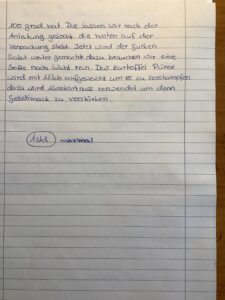 100 grad hat. Die lassen wir nach der
Anleitung gekocht die hinten auf der
Verpackung steht. Jetzt wird der Gurken
Salat weiter gemacht dazu brauchen wir eine
Soße nach Wahl rein. Das Kartoffel Püree
wird mit Milch aufgeweicht um es zu zerstampfen
dazu wird Muskatnuss verwendet um denn
Geschmack zu verstärken.
1std. maximal